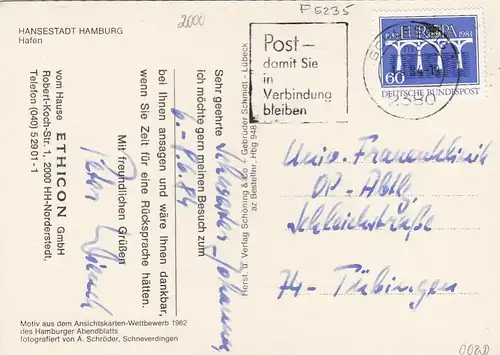 HANSESTADT HAMBURG
Hafen
2000
F 5235
Post –
damit Sie
in
Verbindung
bleiben
EUROPA
1984
60
DEUTSCHE BUNDESPOST
Sehr geehrte Schwester
ich möchte gern meinen Besuch zum
bei Ihnen ansagen und wäre Ihnen dankbar,
wenn Sie Zeit für eine Rücksprache hätten.
Mit freundlichen Grüßen
vom Hause ETHICON GmbH
Robert-Koch-Str. 1, 2000 HH-Norderstedt,
Telefon (040) 5 29 01-1
Herst. u. Verlag Schöning & Co + Gebrüder Schmidt - Lübeck
az Bestellnr. Hbg 948
Univ. Frauenklinik
OP-Abtlg.
Schleichstraße
74-Tübingen
Motiv aus dem Ansichtskarten-Wettbewerb 1982
des Hamburger Abendblatts
fotografiert von A. Schröder, Schneverdingen